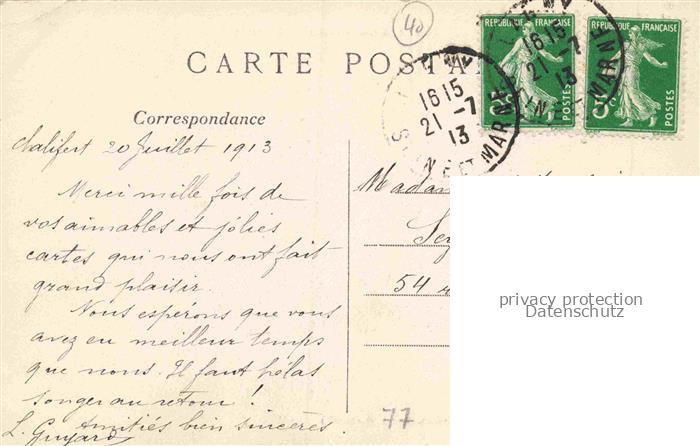 40
CARTE POSTA
RÉPUBLIQUE FRANÇAISE
POSTES
RÉPUBLIQUE FRANÇAISE
POSTES
16 15
21 - 7
13
16 15
21 - 7
13
NE ET MARNE
Correspondance
Chalifert 20 Juillet 1913
Merci mille fois de
vos aimables et jolies
cartes qui nous ont fait
grand plaisir.
Nous espérons que vous
avez eu meilleur temps
que nous. Il faut hélas
songer au retour !
Amitiés bien sincères.
L. Guyard
Madam
54
77
privacy protection
Datenschutz